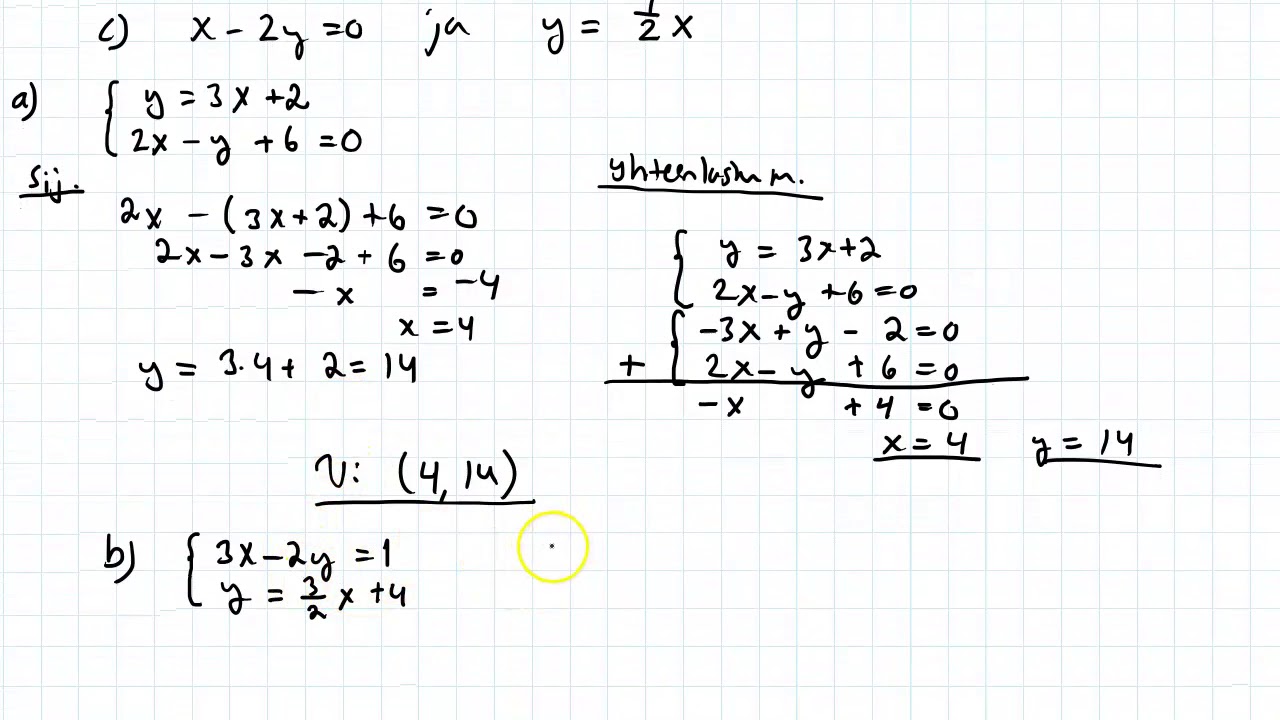 c) x - 2y = 0 ja y = 1/2 x
a) { y = 3x + 2
2x - y + 6 = 0
Sij.
2x - (3x + 2) + 6 = 0
2x - 3x - 2 + 6 = 0
- x = -4
x = 4
y = 3·4 + 2 = 14
yhteenlask m.
{ y = 3x + 2
2x - y + 6 = 0
{ -3x + y - 2 = 0
+ 2x - y + 6 = 0
-x + 4 = 0
x = 4 y = 14
V: (4, 14)
b) { 3x - 2y = 1
y = 3/2 x + 4